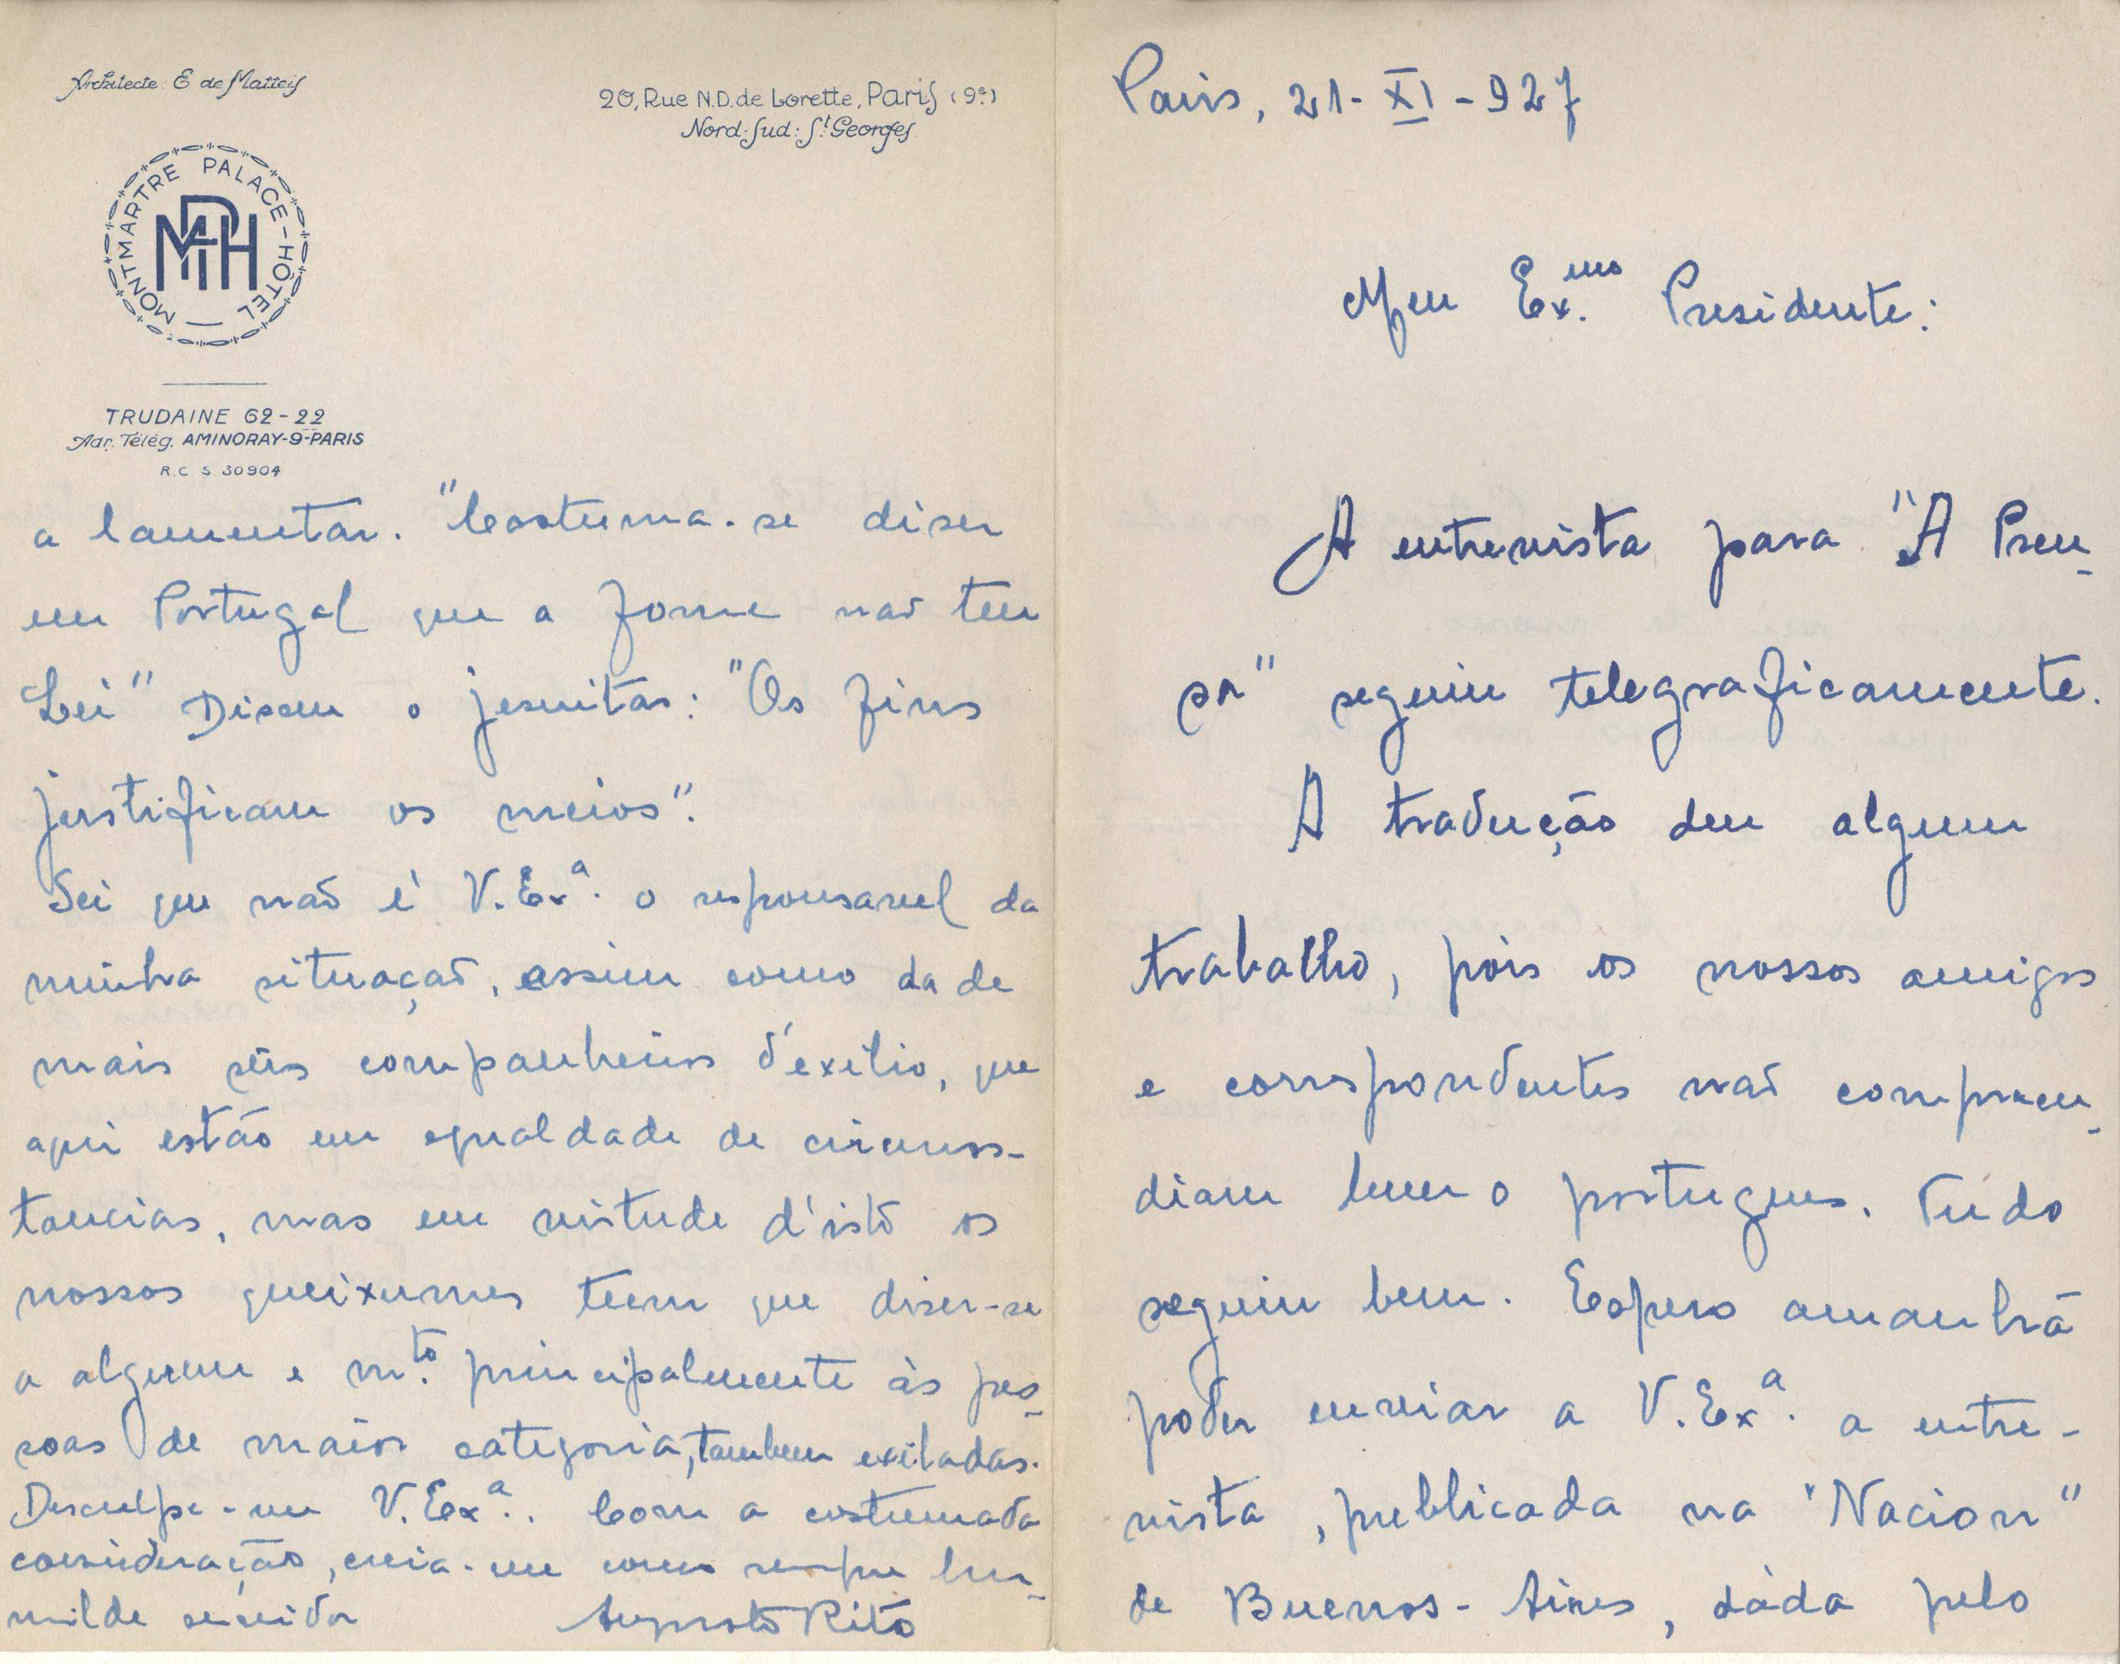 Architecte: E de Matteis
20, Rue N.D. de Lorette, Paris (9e)
Nord-Sud: St Georges
MONTMARTRE PALACE-HÔTEL
MPH
TRUDAINE 62-22
Adr. Télég. AMINORAY-9-PARIS
R.C S 30904
a lamentar. "Costuma-se diser
em Portugal que a fome não tem
Lei" Disem o jesuitas: "Os fins
justificam os meios".
Sei que não é V. Exa. o responsavel da
minha situação, assim como da de
mais seis companheiros d'exilio, que
aqui estão em egualdade de circuns-
tancias, mas em virtude d'isto os
nossos queixumes teem que diser-se
a alguem e mto. principalmente às pes-
soas de maior categoria, tambem exiladas.
Desculpe-me V. Exa.. Com a costumada
consideração, creia-me como sempre hu-
milde servidor Augusto Rito
Paris, 21-XI-927
Meu Ex.mo Presidente:
A entrevista para "A Pren-
sa" seguiu telegraficamente.
A tradução deu algum
trabalho, pois os nossos amigos
e correspondentes não compreen-
diam bem o portugues. Tudo
seguiu bem. Espero amanhã
poder enviar a V. Exa. a entre-
vista, publicada na "Nacion"
de Buenos-Aires, dáda pelo